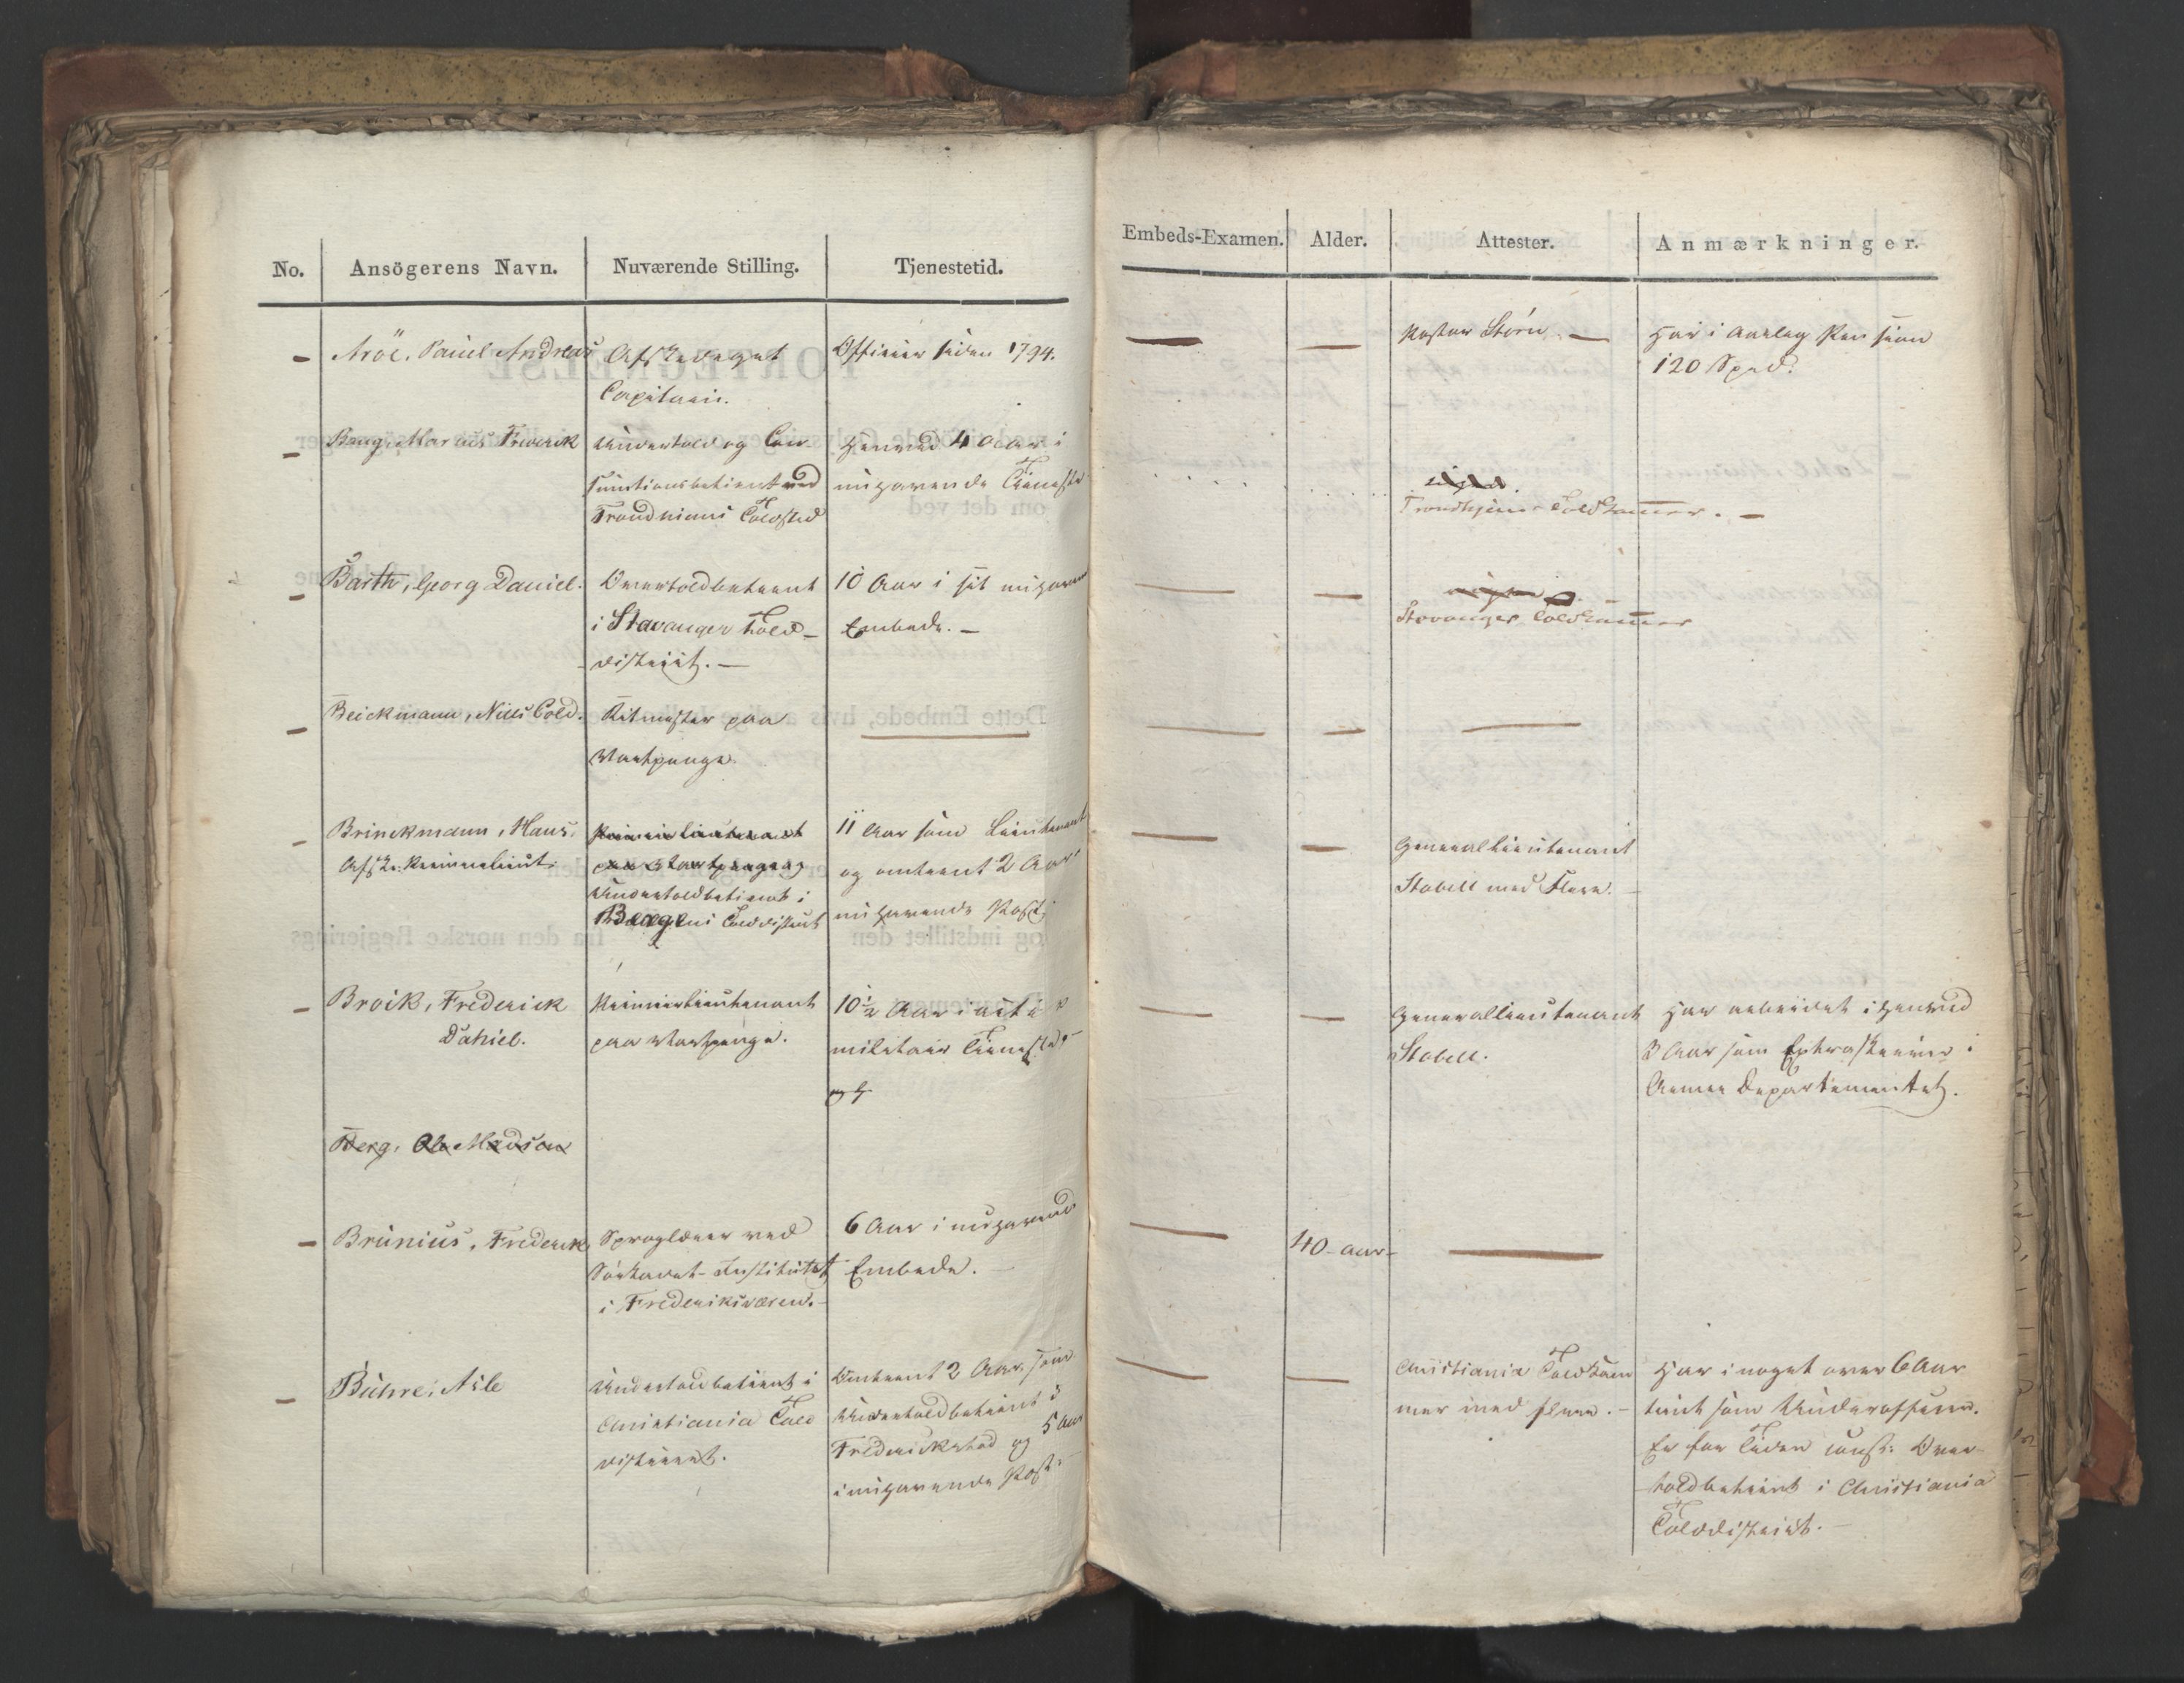 No. Ansögerens Navn. Nuværende Stilling. Tjenestetid. Embeds-Examen. Alder. Attester. Anmærkninger.
— Aröe, Paul Andreas
Afskediget
Capitain.
Officier siden 1794.
— —
Pastor Störn. —
Har i aarlig Pension
120 Spd.
— Bang, Marius Frederik
Undertold og Con-
sumtionsbetient ved
Trondhiems Toldsted
henved 4 Aar i
nuhavende Tieneste
Trondhjems Toldkammer. —
— Barth, Georg Daniel.
Overtoldbetient
i Stavanger Told-
district. —
10 Aar i sit nuhavende
Embede. —
— —
Stavanger Toldkammer
— Beichmann, Niels Cold.
Ritmester paa
Vartpenge.
— — — —
— Brinckmann, Hans.
Afsk. Premierlieut.
Premierlieutenant
paa Vartpenge og
Undertoldbetient i
Bergens Tolddistrict
11 Aar som Lieutenant
og omtrent 2 Aar i
nuhavende Post.
— —
Generallieutenant
Stabell med Flere. —
— Broik, Frederick
Daniel.
Premierlieutenant
paa Vartpenge.
10½ Aar i activ
militair Tieneste,
og 4
— —
Generallieutenant
Stabell.
Har arbeidet i henved
3 Aar som Extraskriver i
Armee Departementet.
Berg, Ole Madson
— Brunius, Frederick
Sproglærer ved
Söekadet-Institutet
i Frederiksværen. —
6 Aar i nuhavende
Embede. —
— 40 aar — —
— Buhre, Asle
Undertoldbetient i
Christiania Told
district.
Omtrent 2 Aar som
Undertoldbetient i
Frederickstad og 5 Aar
i nuhavende Post. —
— —
Christiania Toldkam
mer med flere. —
Har i noget over 6 Aar
tient som Underofficier.
Er for Tiden const: Over-
toldbetient i Christiania
Tolddistrict. —